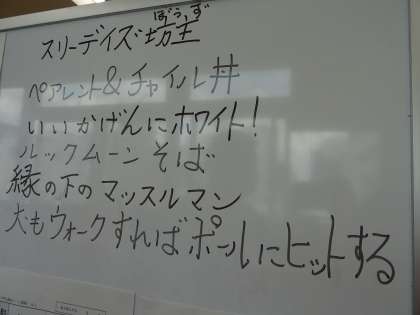 ぼうず
スリーデイズ坊主
ペアレント&チャイルド丼
いいかげんにホワイト!
ルックムーンそば
縁の下のマッスルマン
犬もウォークすればポールにヒットする